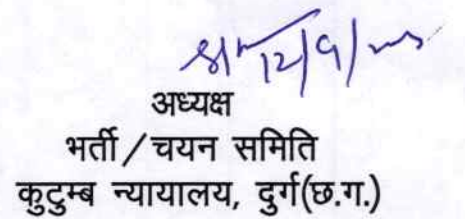 12/9/
अध्यक्ष
भर्ती/चयन समिति
कुटुम्ब न्यायालय, दुर्ग(छ.ग.)